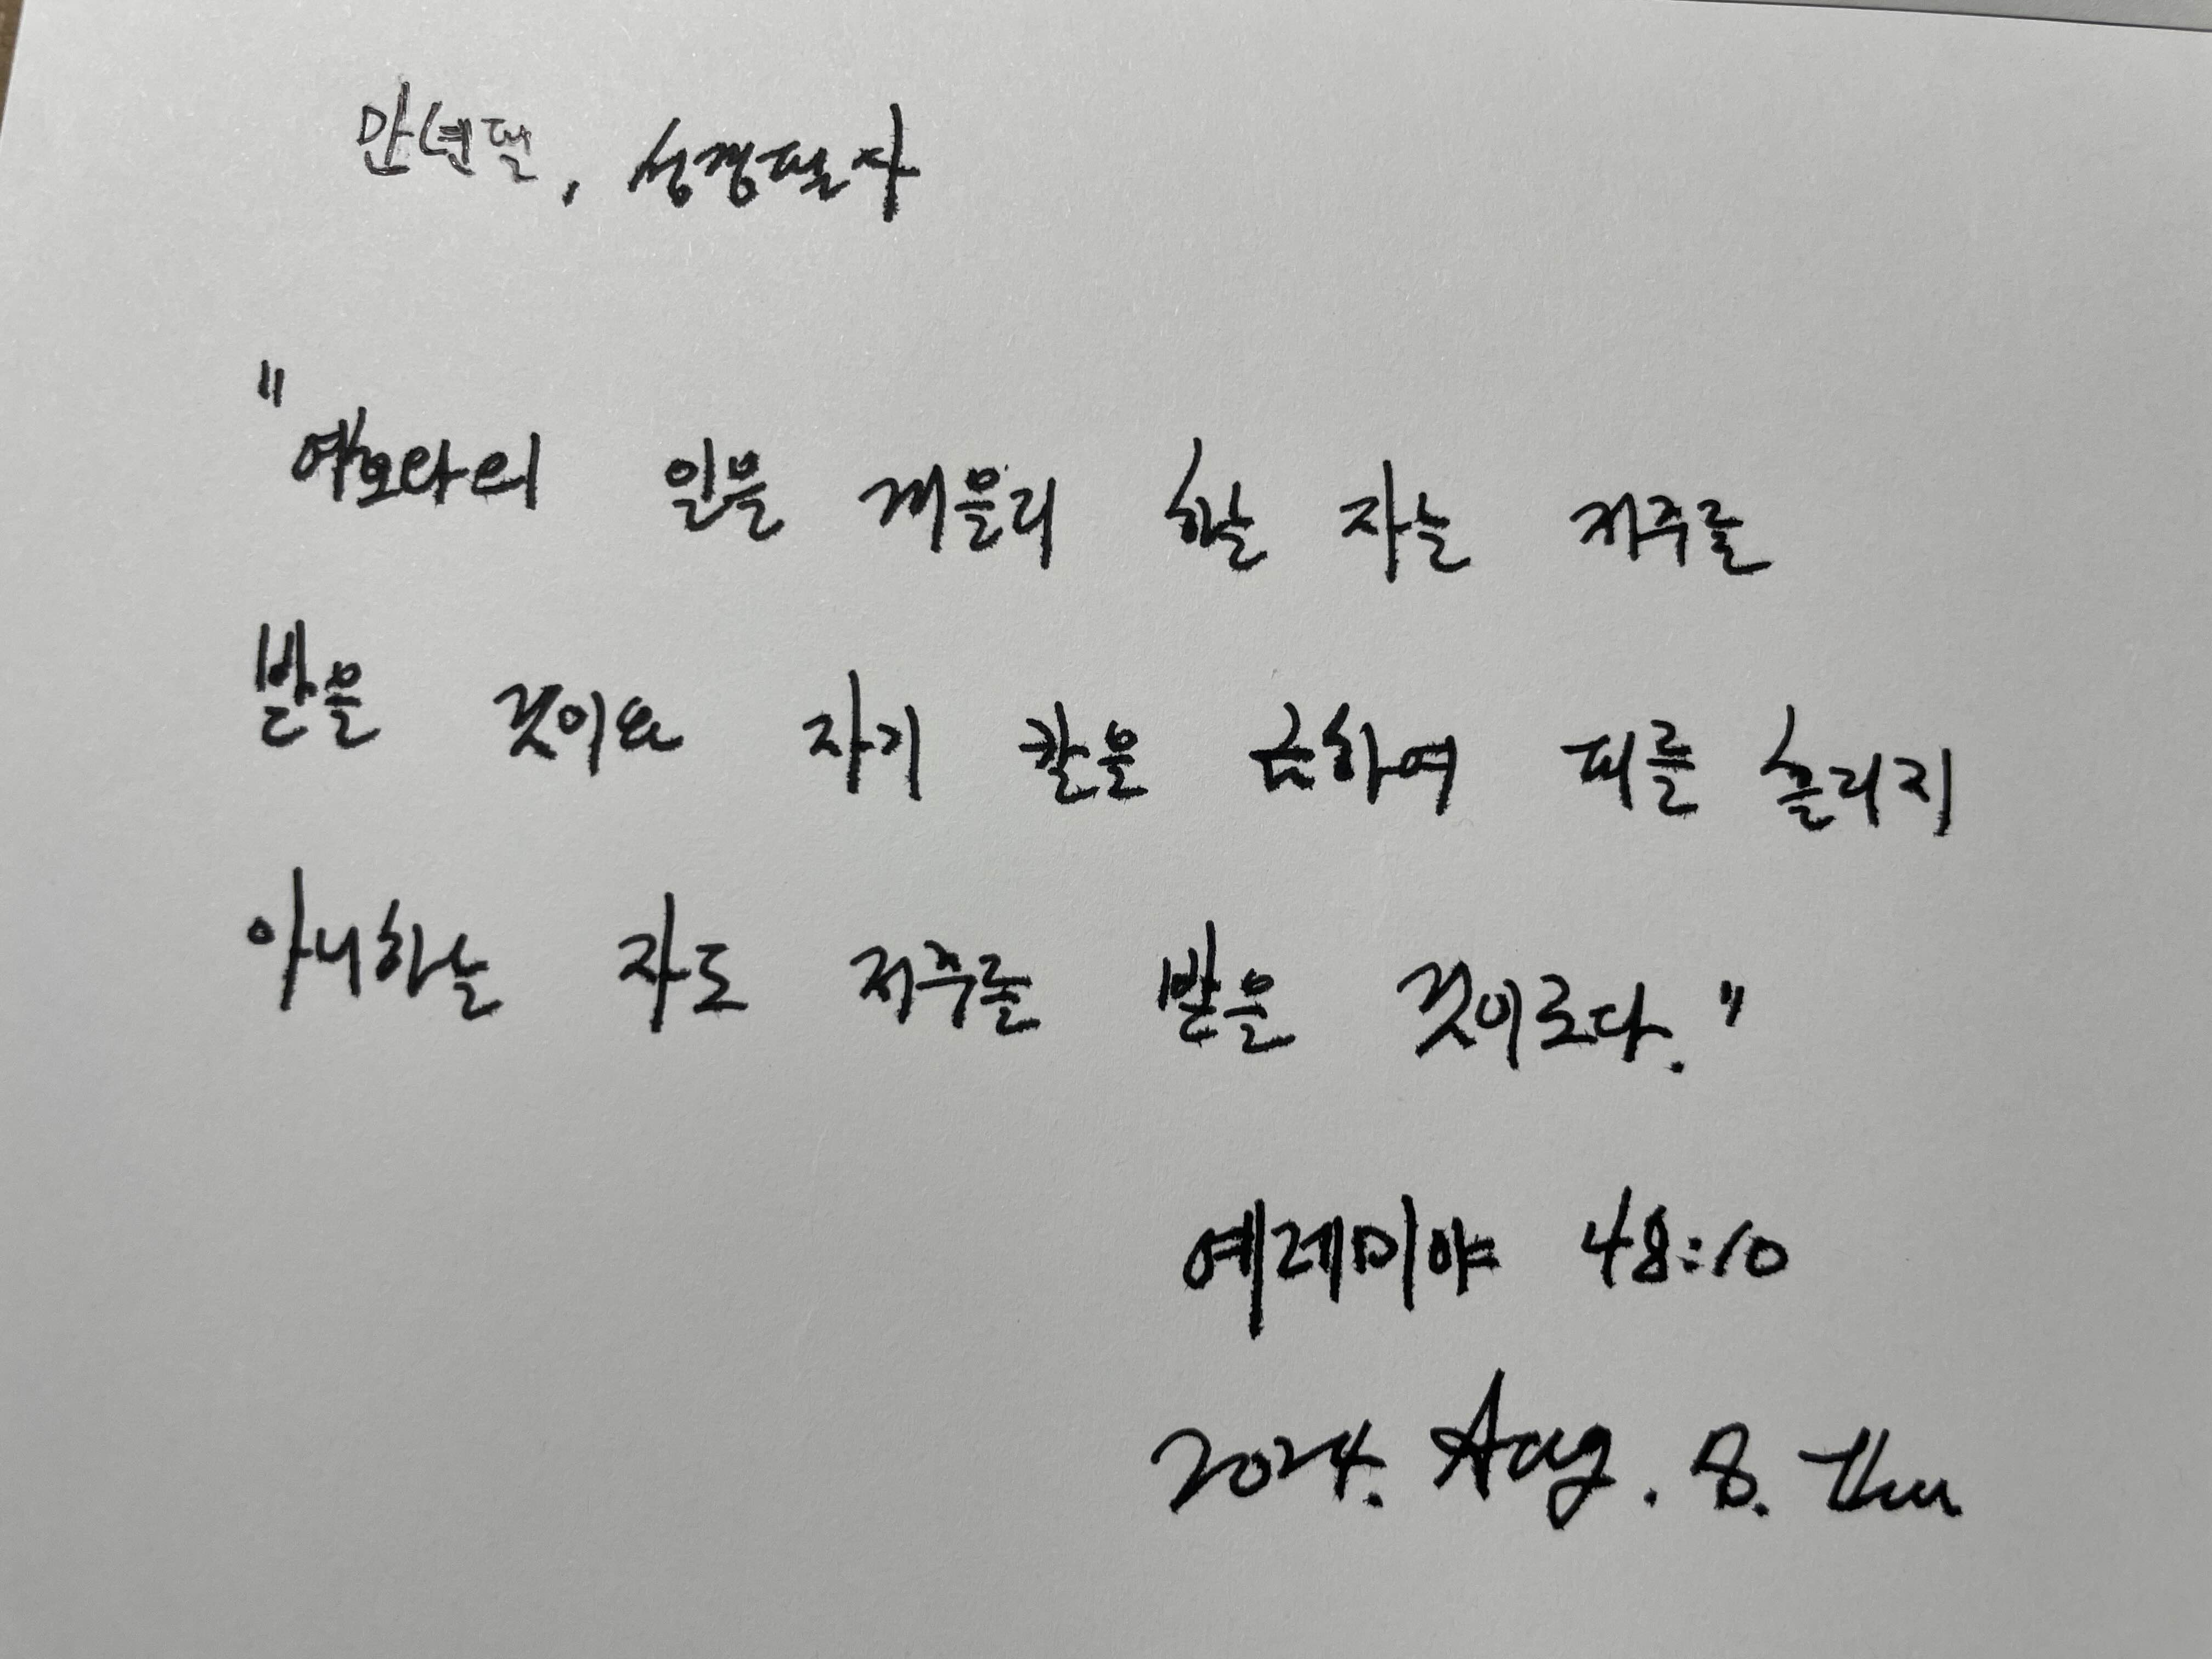 만년필, 성경필사
"여호와의 일을 게을리 하는 자는 저주를
받을 것이요 자기 칼을 금하여 피를 흘리지
아니하는 자도 저주를 받을 것이로다."
예레미야 48:10
2024. Aug. 8. Thu